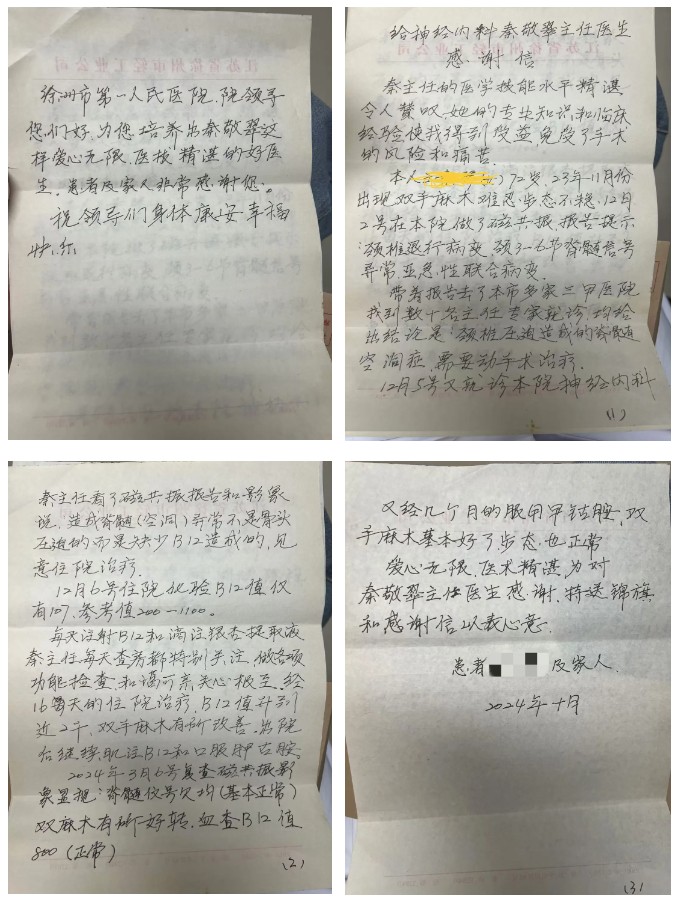 徐州市第一人民医院,院领导
您们好,为您培养出秦敬翠这
样爱心无限,医技精湛的好医
生,患者及家人非常感谢您。
祝领导们身体康安幸福
快乐
给神经内科秦敬翠主任医生
感谢信
秦主任的医学技能水平精湛
令人赞叹,她的专业知识和临床
经验使我得到受益,免受了手术
的风险和痛苦.
本人 72岁,23年11月份
出现双手麻木难忍,步态不稳,12月
2号在本院做了磁共振,报告提示
:颈椎退行病变,颈3-6节脊髓信号
异常,亚急性联合病变.
带着报告去了本市多家三甲医院
找到数十名主任专家就诊,均给
出结论是:颈椎压迫造成的脊髓
空洞症,需要动手术治疗.
12月5号又就诊本院神经内科
(1)
秦主任看了磁共振报告和影象
说,造成脊髓(空洞)异常不是骨头
压迫的而是缺少B12造成的,见
意住院治疗.
12月6号住院化验B12值仅
有107,参考值200—1100。
每天注射B12和滴注银杏提取液
秦主任每天查房都特别关注,做各项
功能检查,和谒可亲关心极至,经
16天的住院治疗,B12值升到
近2千,双手麻木有所改善。出院
后继续肌注B12和口服甲古胺。
2024年3月6号复查磁共振影
象显现:脊髓仪号欠均(基本正常)
双麻木有所好转.血查B12值
800(正常)
(2)
又经几个月的服用甲钴胺,双
手麻木基本好了步态也正常
爱心无限,医术精湛,为对
秦敬翠主任医生感谢,特送锦旗
和感谢信以表心意.
患者 及家人.
2024年十月
(3)